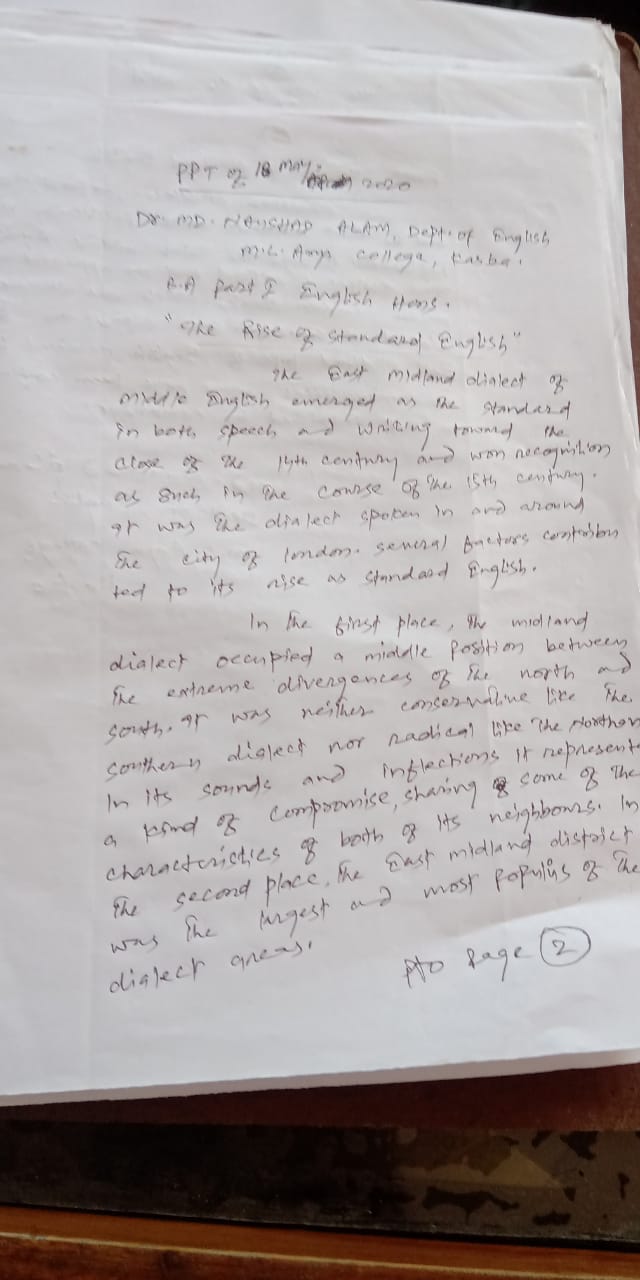 PPT of 18 May 2020
Dr. MD. NAUSHAD ALAM, Dept. of English
M.L. Arya College, Kasba.
B.A Part I English Hons.
"The Rise of Standard English"
The East Midland dialect of
Middle English emerged as the standard
in both speech and writing toward the
close of the 14th century and won recognition
as such in the course of the 15th century.
It was the dialect spoken in and around
the city of london. several factors contribu
ted to its rise as standard English.
In the first place, the midland
dialect occupied a middle position between
the extreme divergences of the north and
south. It was neither conservative like the
southern dialect nor radical like the Northern
In its sounds and inflections it represents
a kind of compromise, sharing some of the
characteristics of both of its neighbours. In
the second place, the East midland district
was the largest and most populus of the
dialect areas.
PTO Page 2